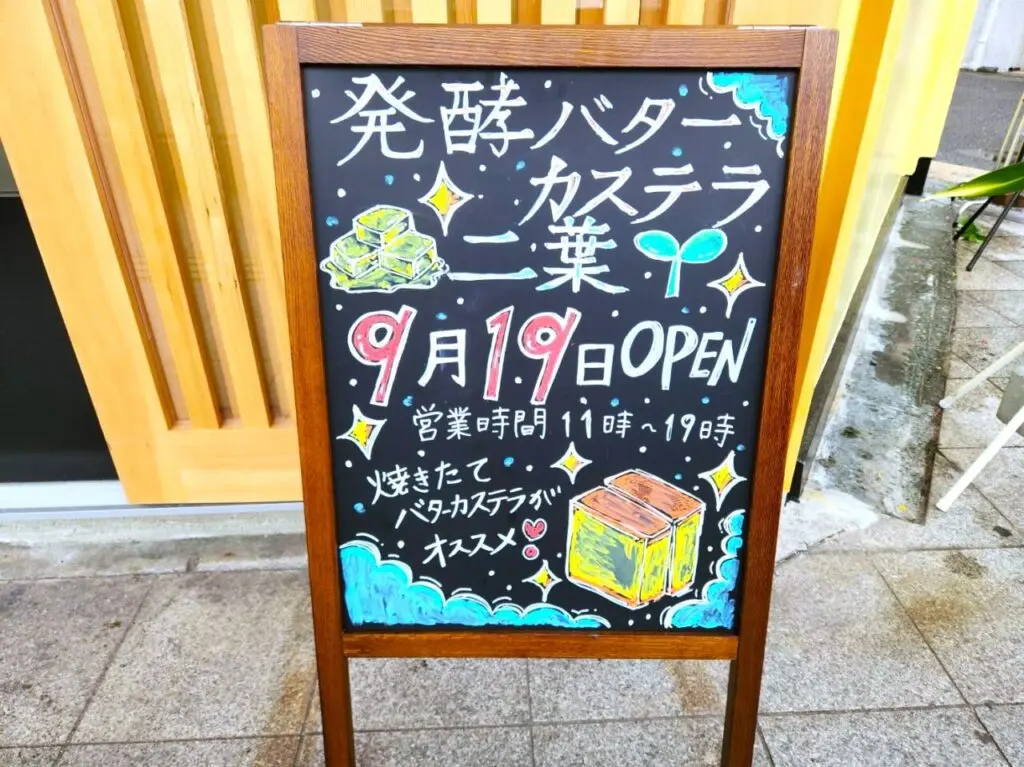 発酵バター
カステラ
二葉
9月19日OPEN
営業時間 11時~19時
焼きたて
バターカステラが
オススメ